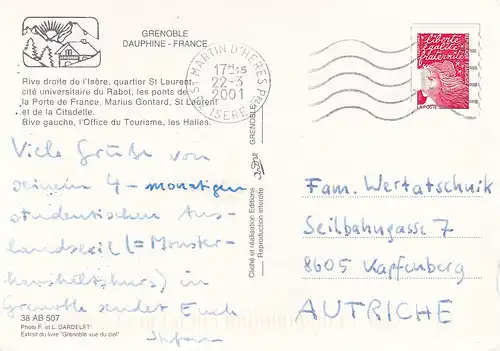 GRENOBLE
DAUPHINE - FRANCE
Rive droite de l'Isère, quartier St Laurent,
cité universitaire du Rabot, les ponts de
la Porte de France, Marius Gontard, St Laurent
et de la Citadelle.
Bive gauche, l'Office du Tourisme, les Halles.
ST MARTIN D'HERES PPAL
17H15
22-3
2001
ISERE
liberté
égalité
fraternité
LA POSTE
Viele Grüße von
seinem 4-monatigen
studentischen Aus-
landsteil (= Monster-
haushaltskurs) in
Grenoble sendet Euch
Stefan
Fam. Wertatschnik
Seilbahngasse 7
8605 Kapfenberg
AUTRICHE
38 AB 507
Photo F. et L. DARDELET
Extrait du livre "Grenoble vue du ciel"
Cliché et réalisation Editions
Reproduction interdite
GRENOBLE